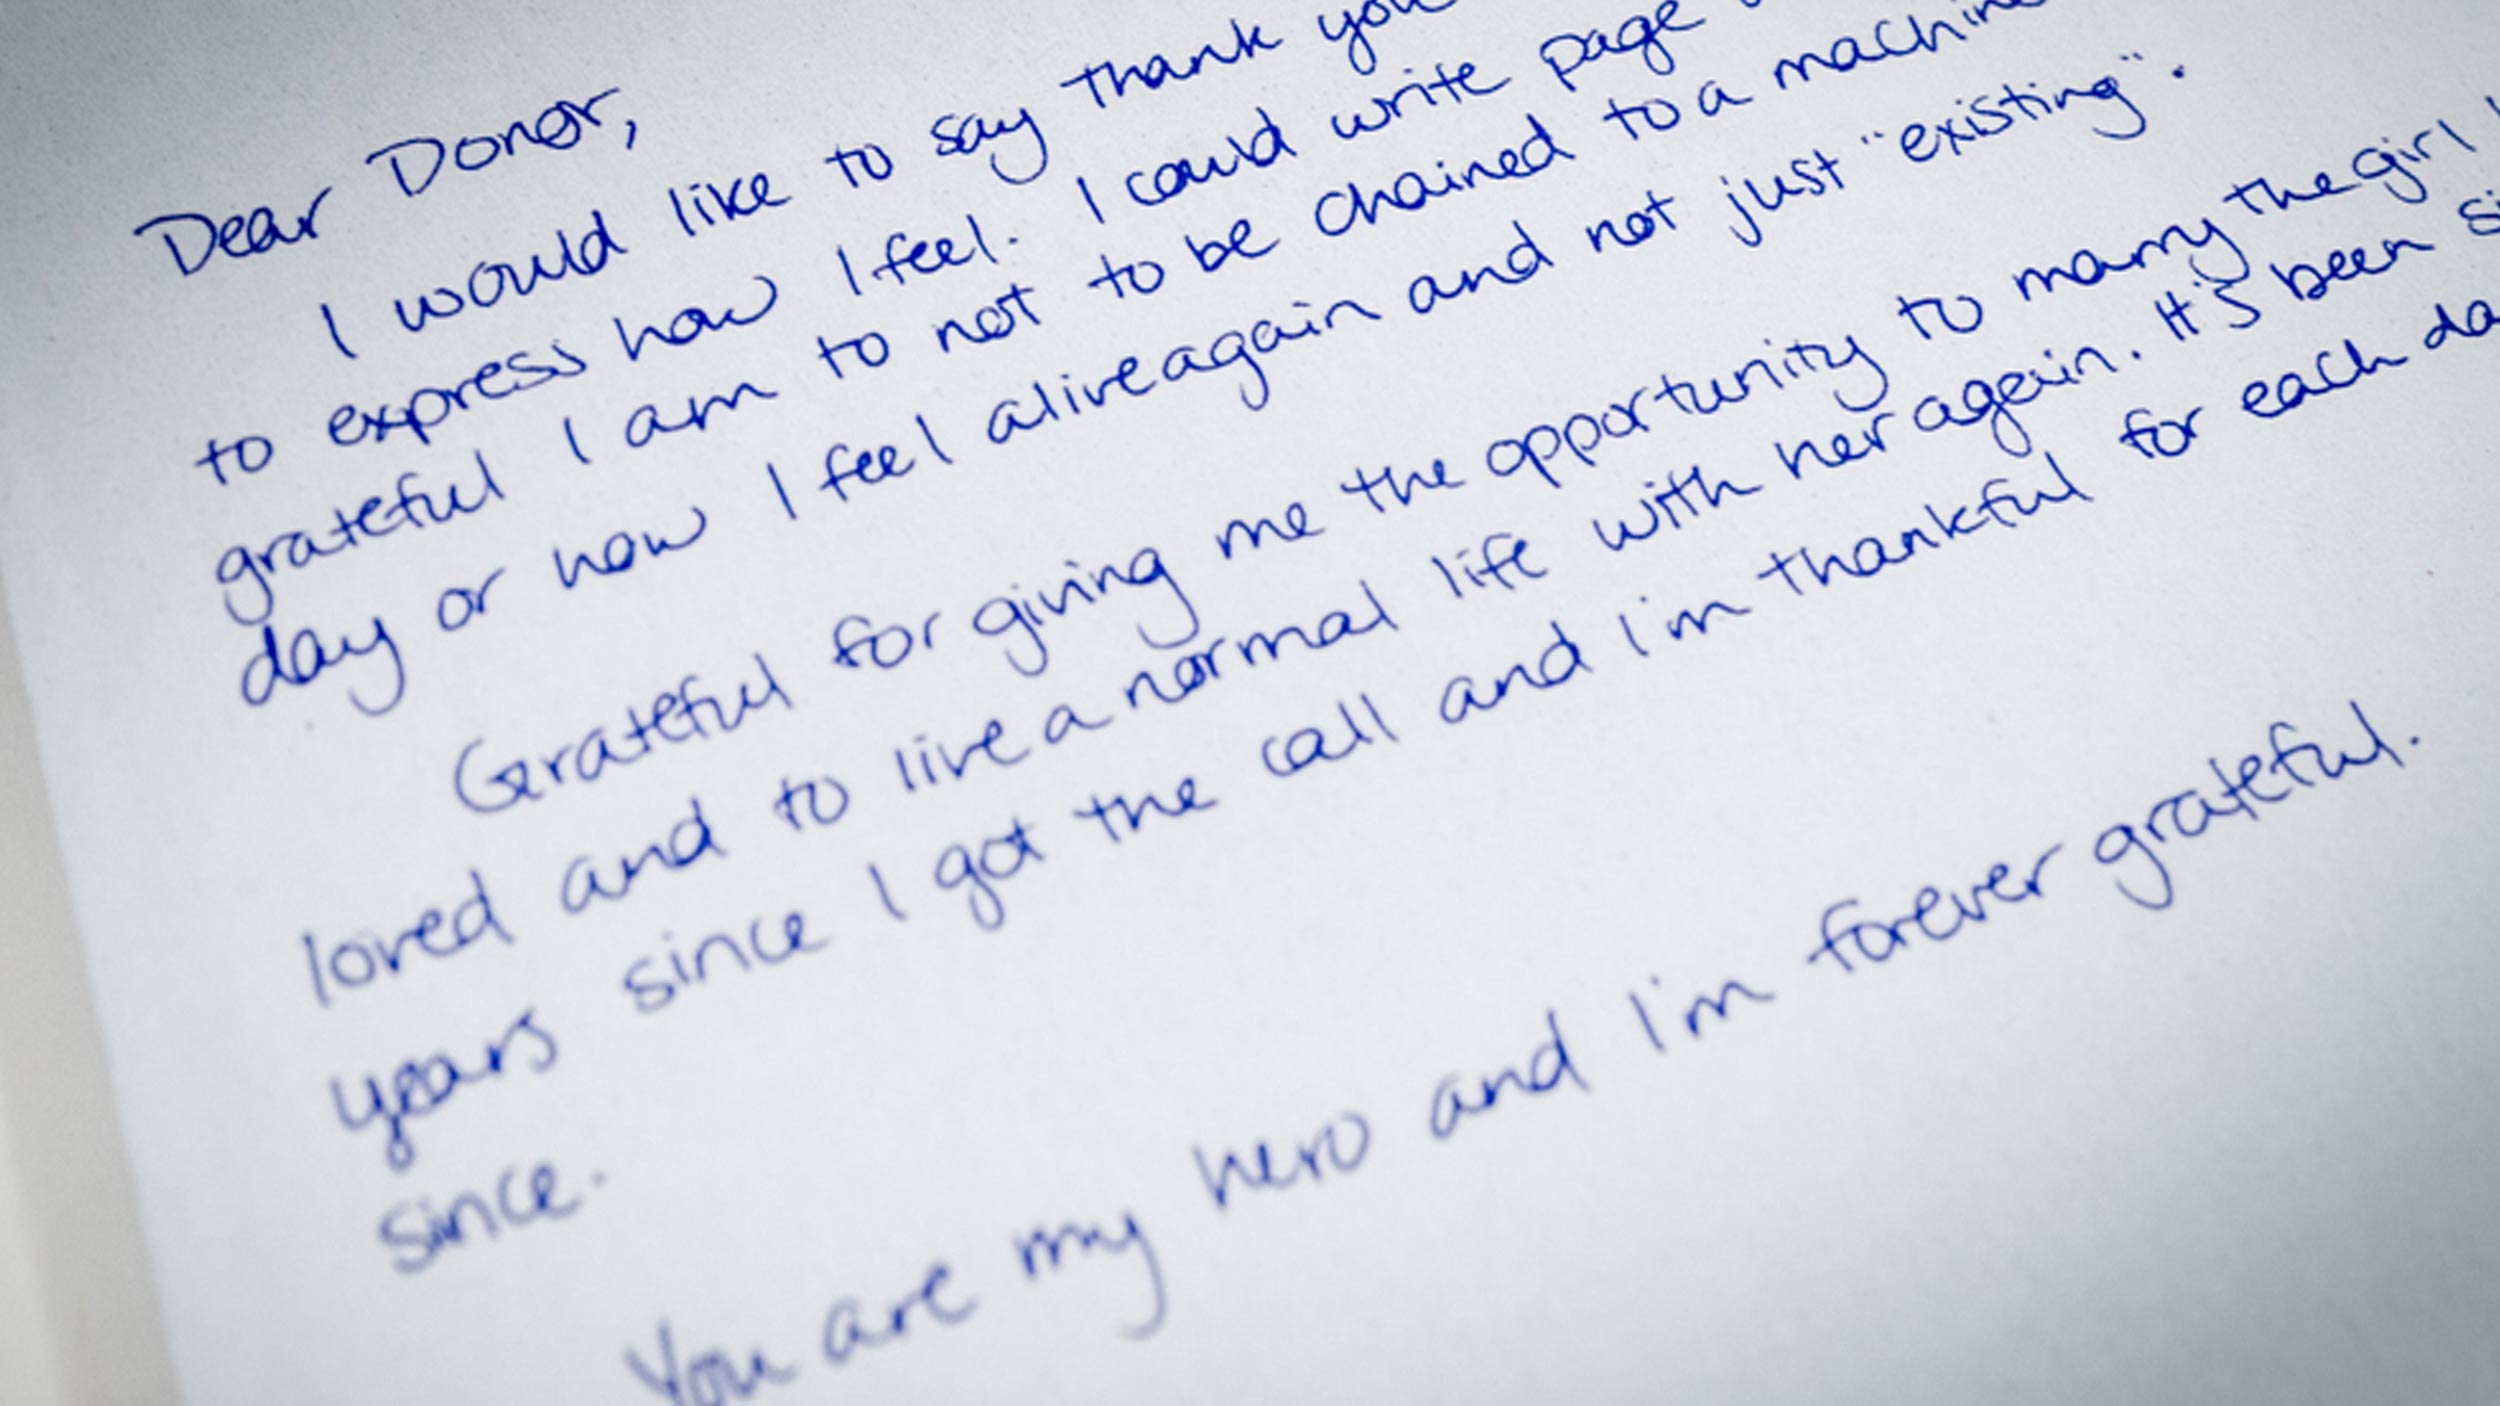 Dear Donor,
I would like to say thank you
to express how I feel. I could write page
grateful I am to not to be chained to a machine
day or how I feel alive again and not just "existing".
Grateful for giving me the opportunity to marry the girl I
loved and to live a normal life with her again. It's been
years since I got the call and I'm thankful for each
since.
You are my hero and I'm forever grateful.